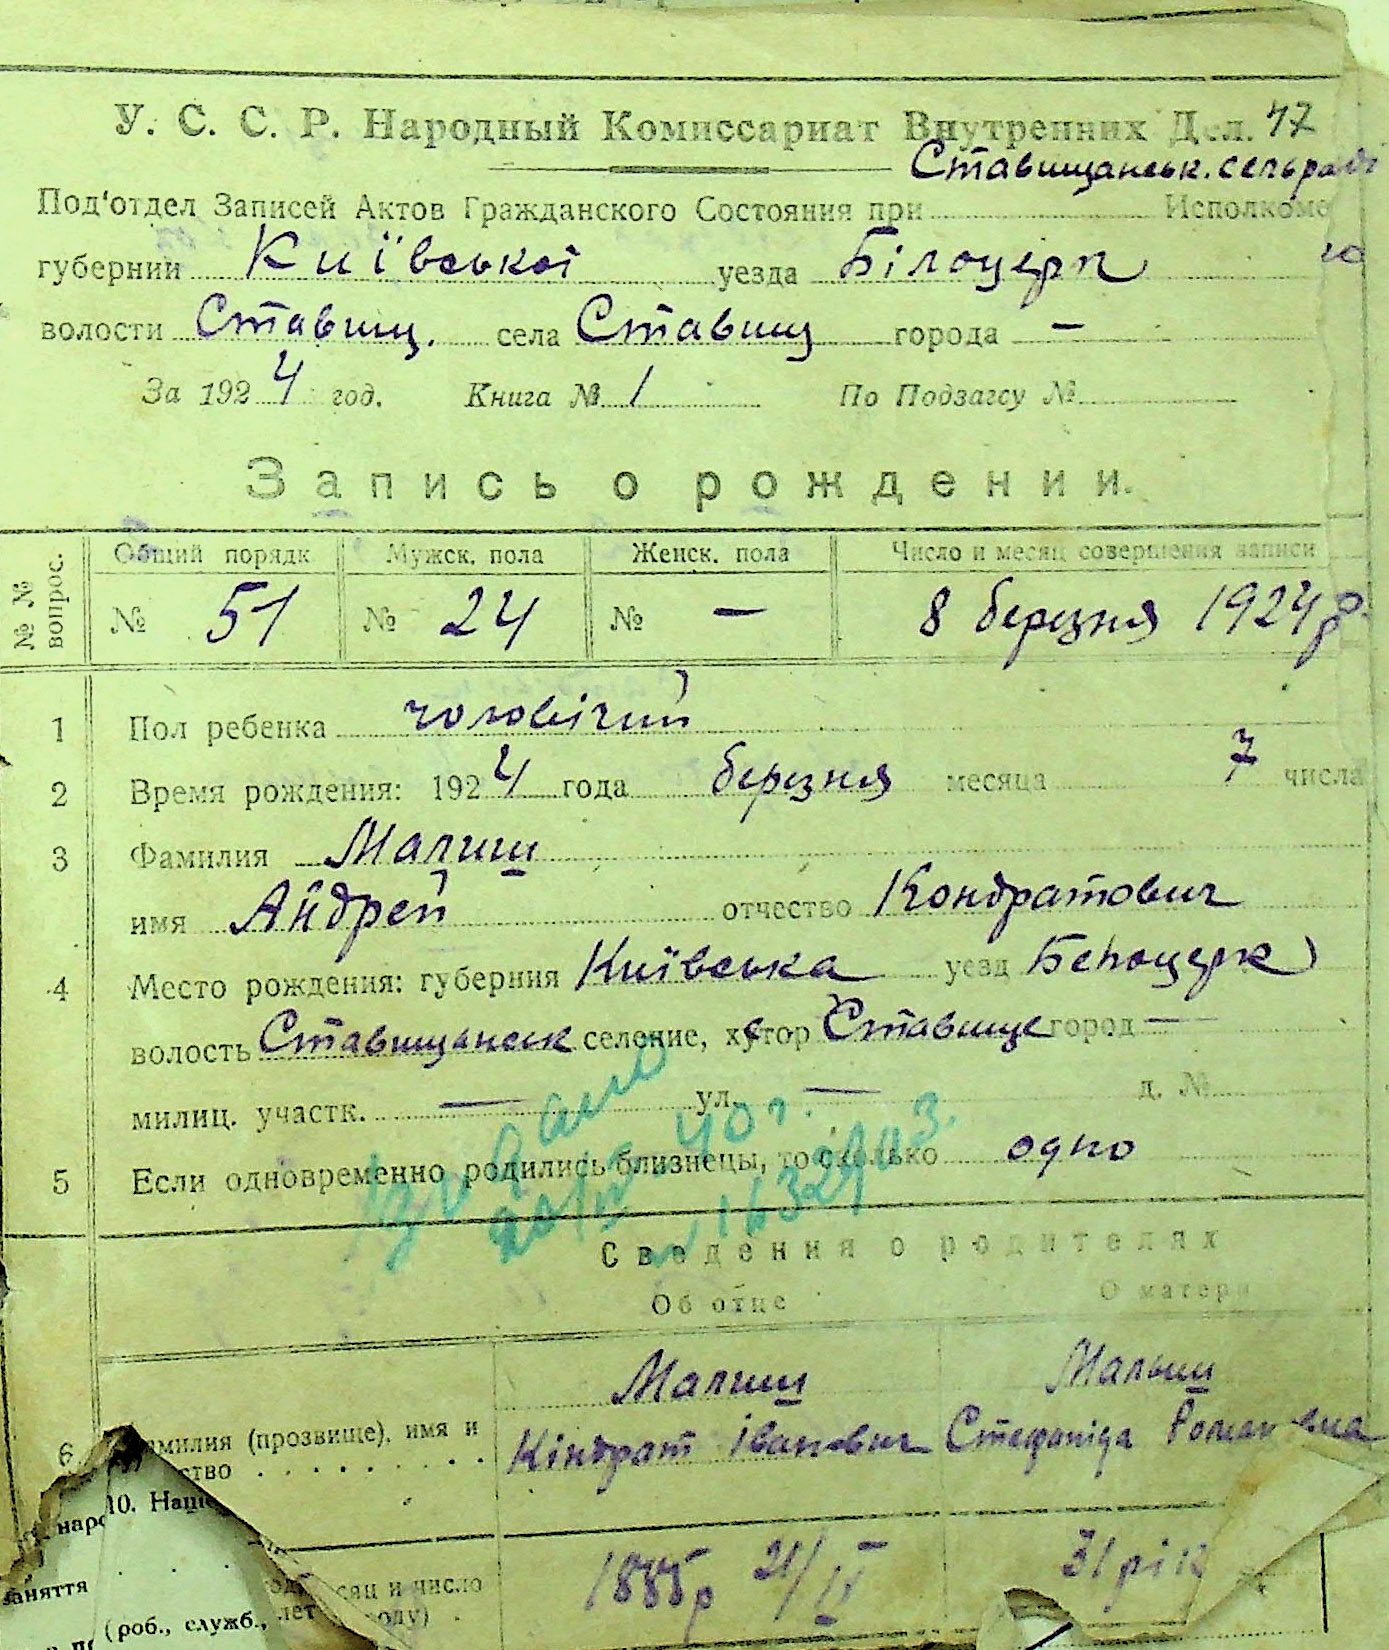 У. С. С. Р. Народный Комиссариат Внутренних Дел. 47
Ставищанськ. сельраді
Под'отдел Записей Актов Гражданского Состояния при Исполкоме
губернии Київської уезда Білоцерк
волости Ставищ. села Ставищ города —
За 1924 год. Книга № 1 По Подзагсу №
Запись о рождении.
№ № вопрос.
Общий порядк Мужск. пола Женск. пола Число и месяц совершения записи
№ 51 № 24 № — 8 березня 1924 р.
1 Пол ребенка чоловічий
2 Время рождения: 1924 года березня месяца 7 числа
3 Фамилия Малиш
имя Андрей отчество Кондратович
4 Место рождения: губерния Київська уезд Белоцерк
волость Ставищанск селение, хутор Ставище город —
милиц. участк. — ул. — д. №
5 Если одновременно родились близнецы, то сколько одно
40 г.
Сведения о родителях
Об отце О матери
Малиш Малыш
6 амилия (прозвище), имя и Кіндрат Іванович Стефаніда Романовна
ство
10. Наці
народ
сяц и число 1885 р 21/IV 31 рік
заняття
лет
(роб., служб.,